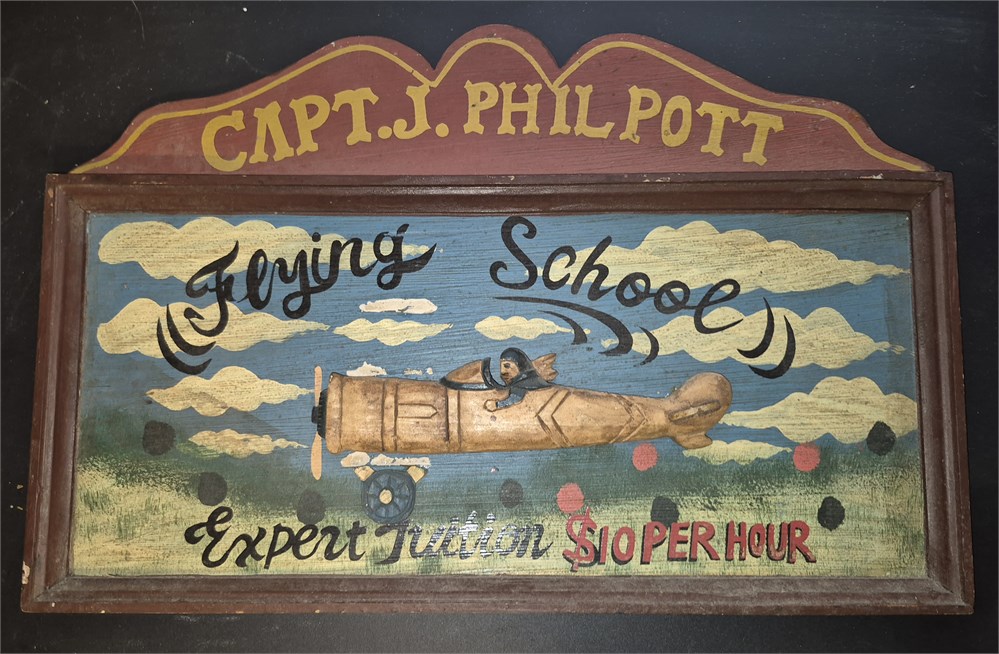 CAPT. J. PHILPOTT
Flying School
Expert Tuition $10 PER HOUR